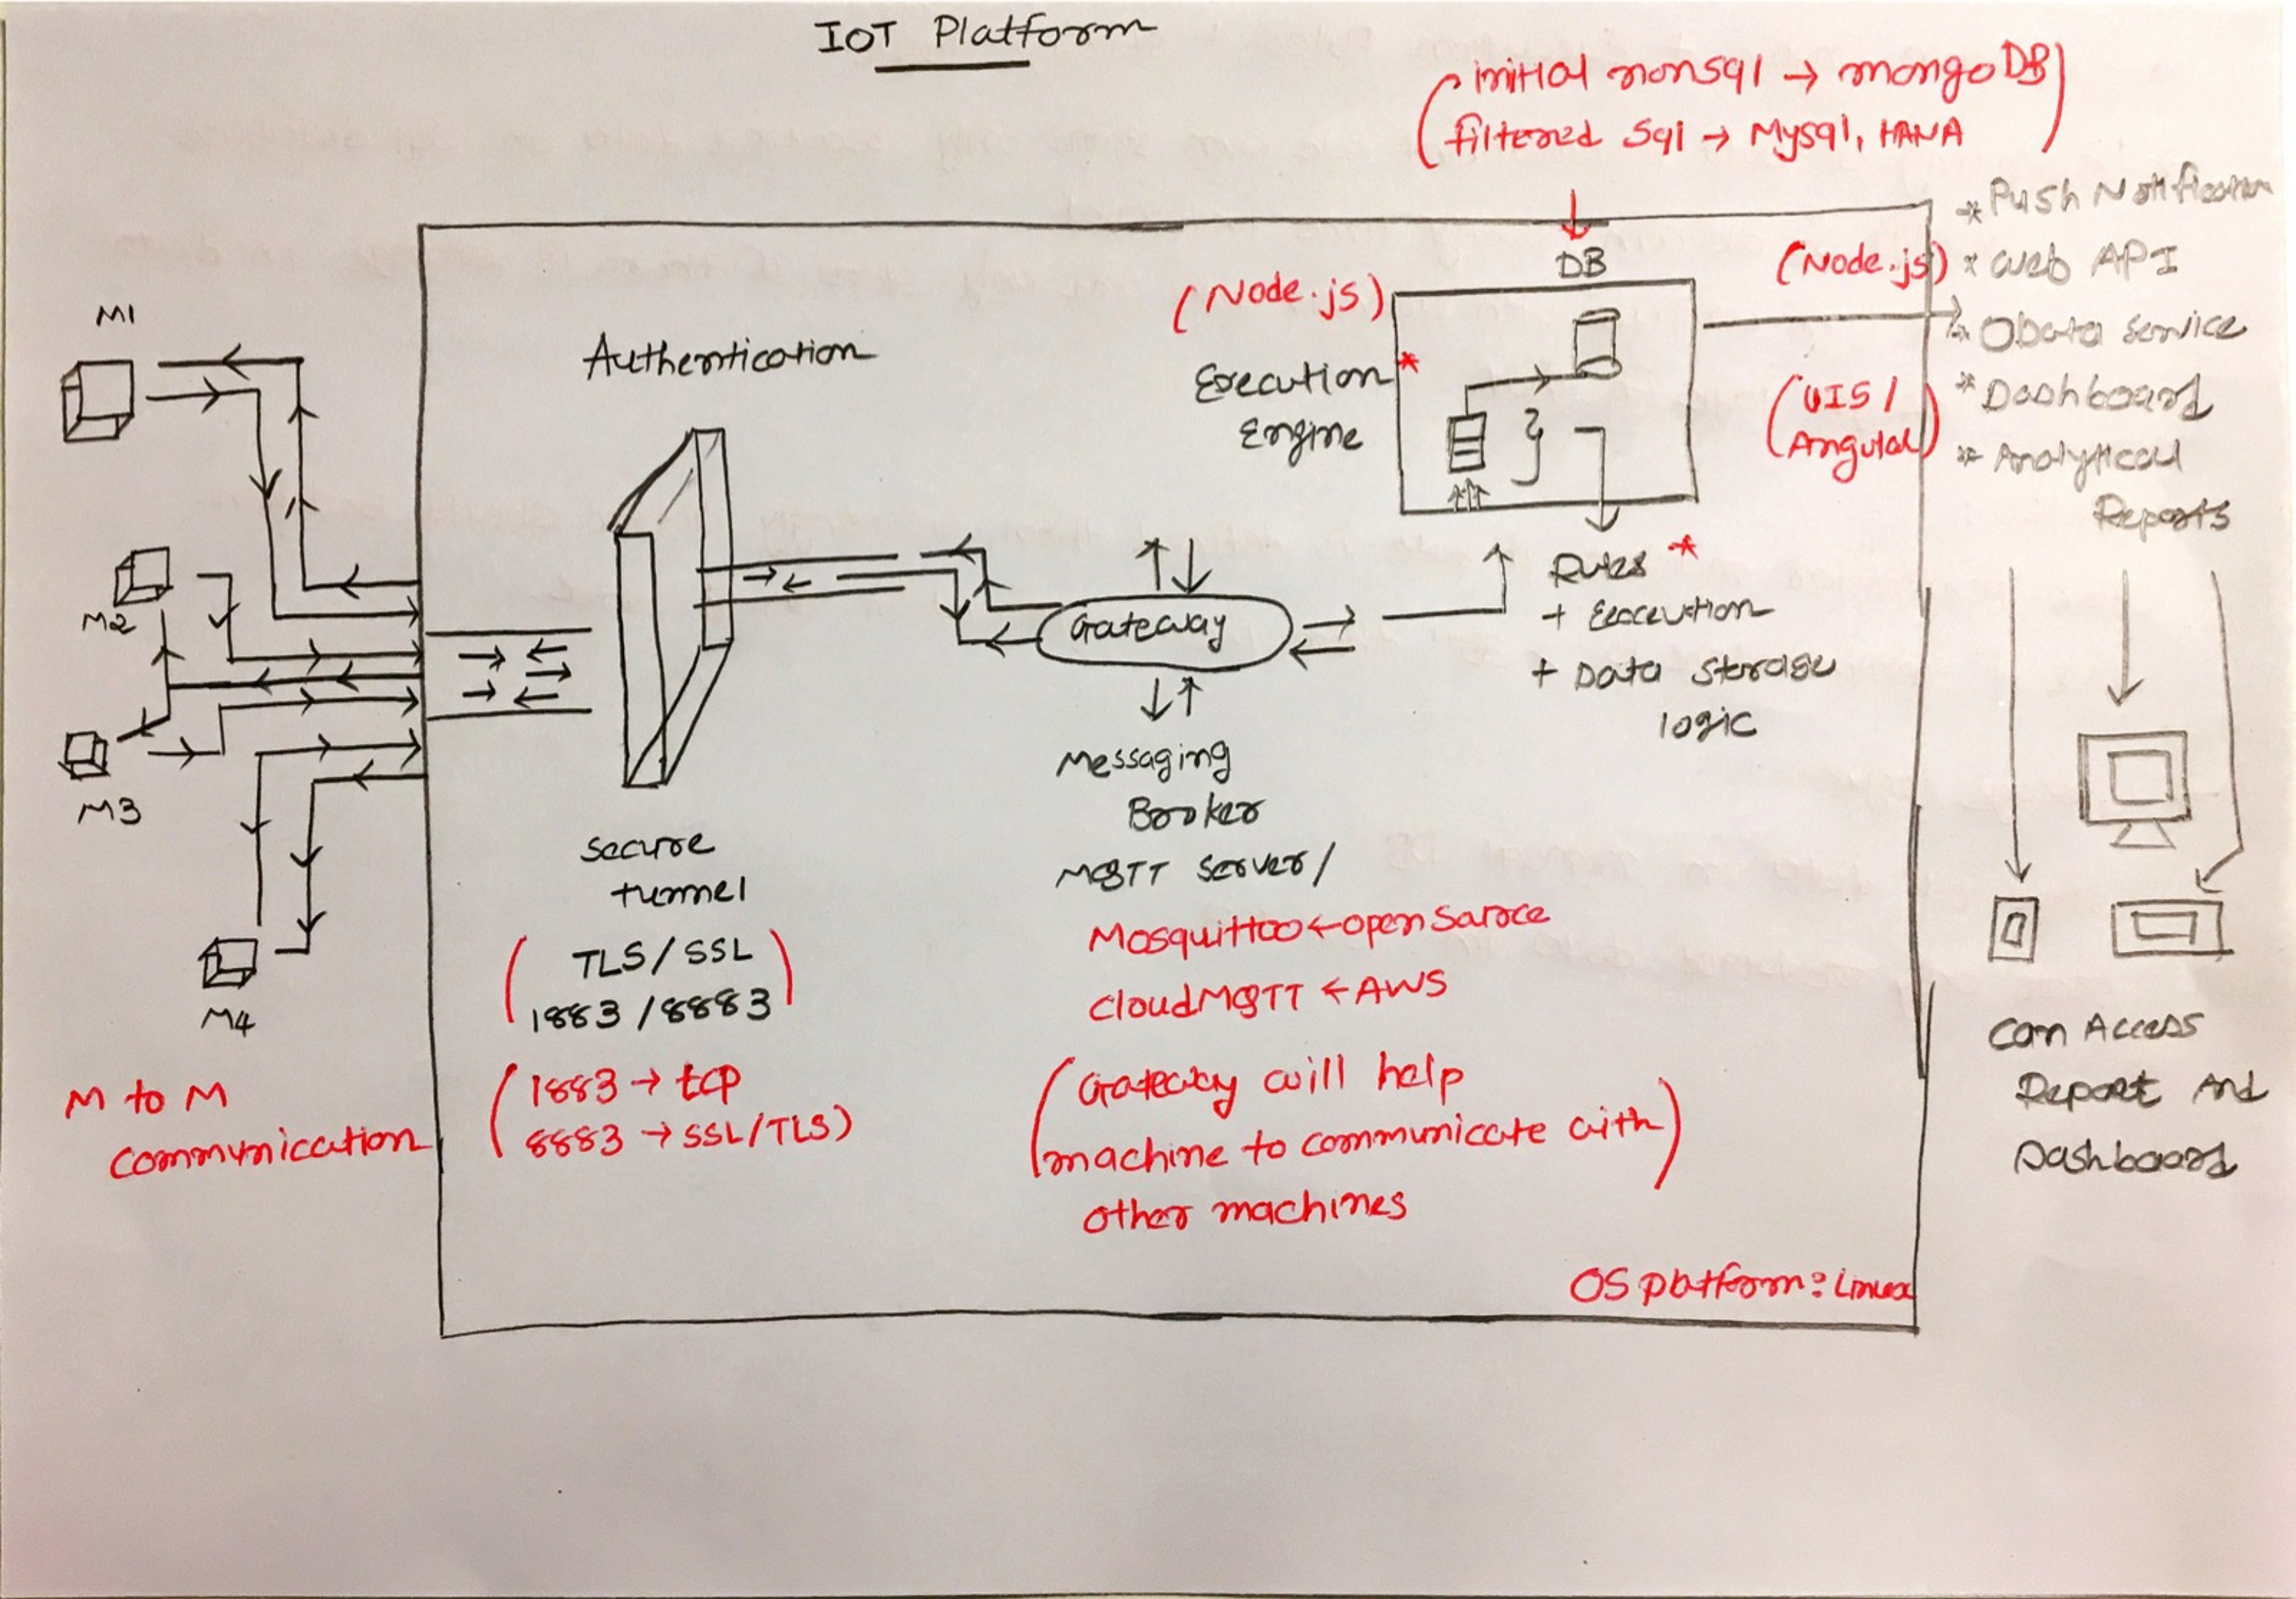 IoT Platform
(initial nonsql → mongoDB)
(filtered Sql → Mysql, HANA)
* Push Notification
* Web API
* OData Service
* Dashboard
* Analytical
Reports
(Node.js)
(UI5 /
Angular)
DB
(Node.js)
Execution *
Engine
Rules *
+ Execution
+ Data Storage
logic
M1
M2
M3
M4
M to M
Communication
Authentication
Secure
tunnel
(TLS/SSL
1883/8883)
(1883 → tcp
8883 → SSL/TLS)
Gateway
Messaging
Broker
MQTT Server/
Mosquittoo ← open Saroce
CloudMQTT ← AWS
(Gateway will help
machine to communicate with)
other machines
OS platform: Linux
Can Access
Report And
Dashboard